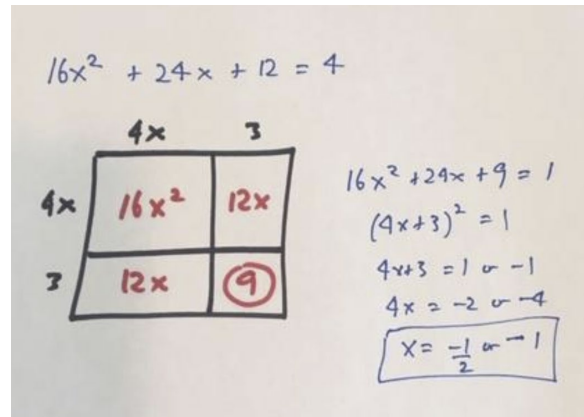 16x² + 24x + 12 = 4
4x 3
4x 16x² 12x
3 12x 9
16x² + 24x + 9 = 1
(4x+3)² = 1
4x+3 = 1 or -1
4x = -2 or -4
x = -1/2 or -1